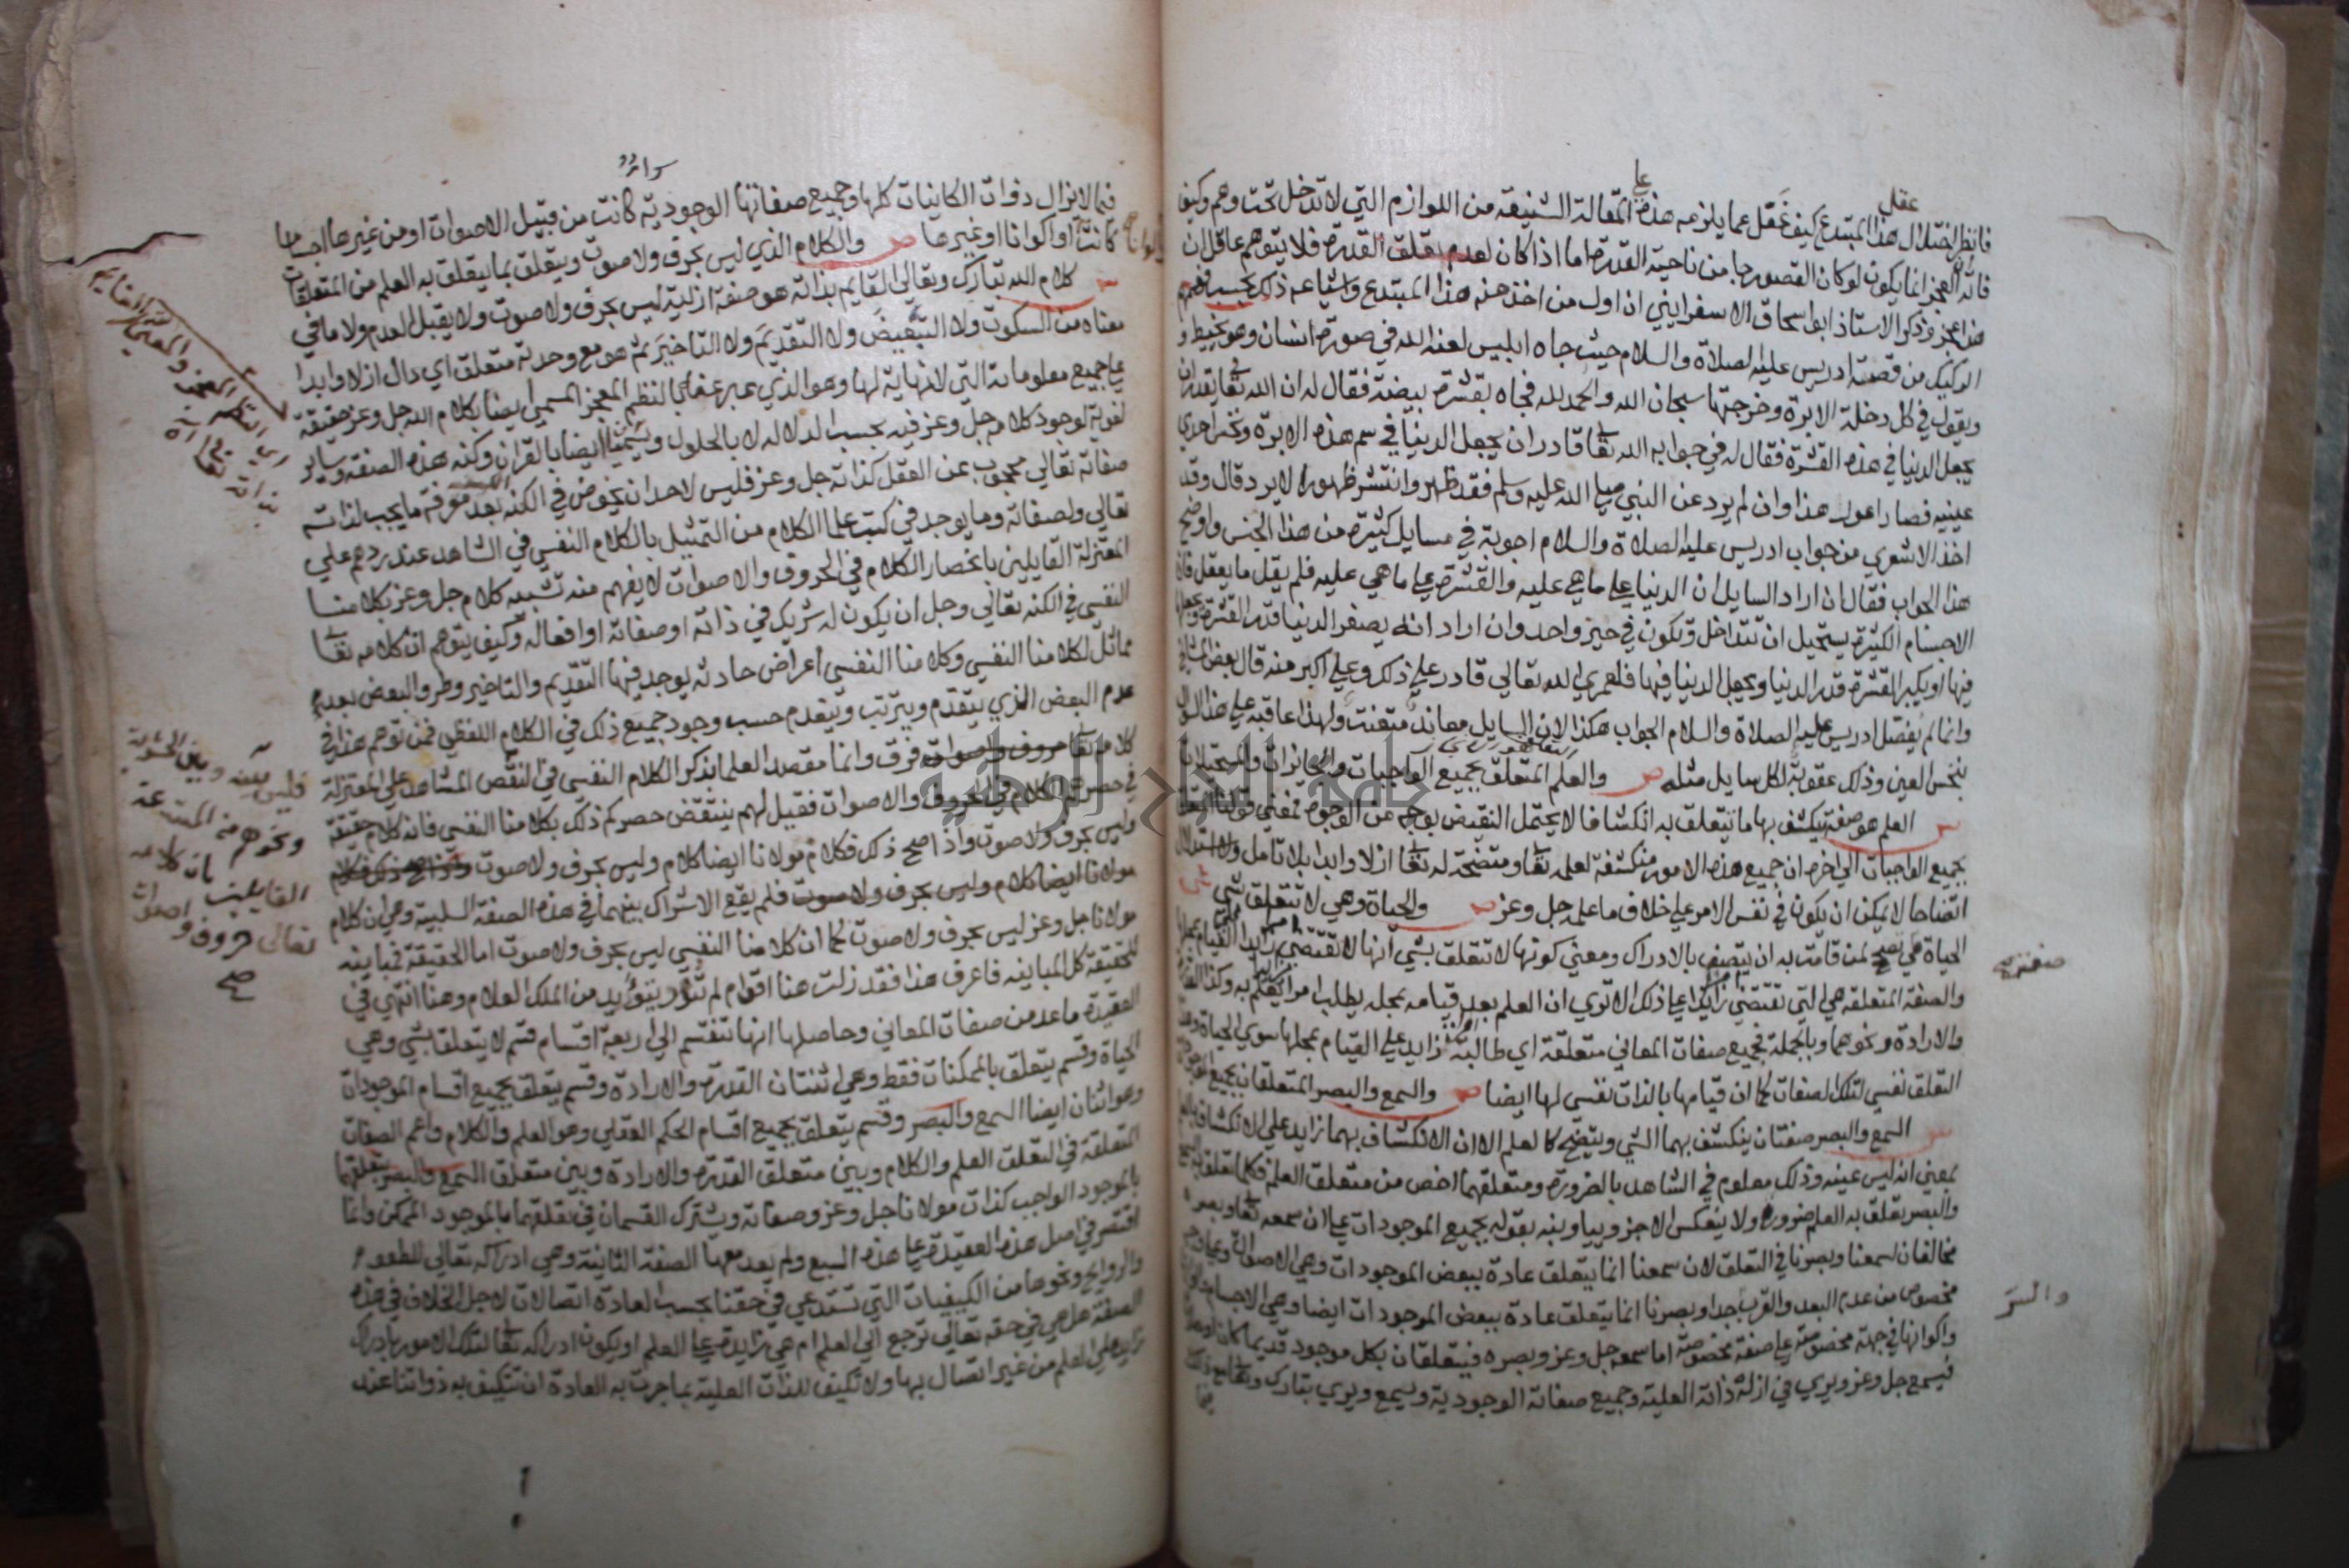 عقل
على
فانظر اختلال هذا المبتدع كيف غفل عما يلزمه هذه المقالة الشنيعة من اللوازم التي لا تدخل تحت وهم وكيف
فاته ان العجز انما يكون لو كان القصور جا من ناحية القدرة اما اذا كان لعدم تعلق القدرة فلا يتوهم عاقل ان
هذا عجز وذكر الاستاذ ابو اسحاق الاسفرايني ان اول من اخذ منه هذا المبتدع واشياعه ذلك بحسب فهمهم
الركيك من قصة ادريس عليه الصلاة والسلام حيث جاه ابليس لعنه الله في صورة انسان وهو يخيط و
ويقول في كل دخلة الابرة وخرجتها سبحان الله والحمد لله فجاه بقشرة بيضة فقال له ان الله تعا يقدر ان
يجعل الدنيا في هذه القشرة فقال له في جوابه الله تعا قادر ان يجعل الدنيا في سم هذه الابرة ونخس احدي
عينيه فصار اعور هذا وان لم يرد عن النبي صلي الله عليه وسلم فقد ظهر وانتشر ظهورا لا يرد قال وقد
اخذ الاشعري من جواب ادريس عليه الصلاة والسلام اجوبة في مسايل كثيرة من هذا الجنس واوضح
هذا الجواب فقال ان اراد السايل ان الدنيا على ما هي عليه والقشرة على ما هي عليه فلم يقل ما يعقل فان
الاجسام الكثيرة يستحيل ان تتداخل وتكون في حيز واحد وان اراد انه يصغر الدنيا قدر القشرة ويجعلها
فيها او يكبر القشرة قدر الدنيا ويجعل الدنيا فيها فلعمري الله تعالي قادر على ذلك وعلي اكبر منه قال بعض المشايخ
وانما لم يفصل ادريس عليه الصلاة والسلام الجواب هكذا لان السايل معاند متعنت ولهذا عاقبه على هذا السوال
بنخس العين وذلك عقوبة لكل سايل مثله ص والعلم المتعلق بجميع الواجبات والجايزات والمستحيلات
ش العلم هو صفة ينكشف بها ما تتعلق به انكشافا لا يحتمل النقيض بوجه من الوجوه فمعني قولنا المتعلق
بجميع الواجبات الي اخره ان جميع هذه الامور منكشفة لعلمه تعا ومتضحة له تعا ازلا وابدا بلا تامل ولا استدلال
اتضاحا لا يمكن ان يكون في نفس الامر علي خلاف ما علمه جل وعز ص والحياة وهي لا تتعلق بشي ش
الحياة هي تصحح لمن قامت به ان يتصف بالادراك ومعني كونها لا تتعلق بشي انها لا تقتضي زايدا القيام بمحلها
صفة صح
والصفة المتعلقة هي التي تقتضي زايدا على ذلك الا تري ان العلم بعد قيامه بمحله يطلب امرا يعلم به وكذا القدرة
والارادة ونحوهما وبالجملة فجميع صفات المعاني متعلقة اي طالبة زايد علي القيام بمحلها سوي الحياة وهذا
التعلق نفسي لتلك الصفات كما ان قيامها بالذات نفسي لها ايضا ص والسمع والبصر المتعلقان بجميع الموجودات
ش السمع والبصر صفتان ينكشف بهما الشي ويتضح كالعلم الا ان الانكشاف بهما زايد علي الانكشاف بالعلم
بمعني انه ليس عينه وذلك معلوم في الشاهد بالضرورة ومتعلقهما اخص من متعلق العلم فكل ما تعلق به السمع
والبصر تعلق به العلم ضرورة ولا ينعكس الا جزوييا ونبه بقوله بجميع الموجودات على ان سمعه تعا وبصره
مخالفان لسمعنا وبصرنا في التعلق لان سمعنا انما يتعلق عادة ببعض الموجودات وهي الاصوات وعلى وجه
مخصوص من عدم البعد والقرب جدا وبصرنا انما يتعلق عادة ببعض الموجودات ايضا وهي الاجسام والوانها
والسر
واكوانها في جهة مخصوصة على صفة مخصوصة اما سمعه جل وعز وبصره فيتعلقان بكل موجود قديما كان او حادثا
فيسمع جل وعز ويري في ازله ذاته العلية وجميع صفاته الوجودية ويسمع ويري تبارك وتعالي مع ذلك
فيما
سوائر
فيما لا يزال ذوات الكاينات كلها وجميع صفاتها الوجودية كانت من قبيل الاصوات او من غيرها اجساما
كانت او اكوانا او غيرها ص والكلام الذي ليس بحرف ولا صوت ويتعلق بما يتعلق به العلم من المتعلقات
ش كلام الله تبارك وتعالي القايم بذاته هو صفة ازلية ليس بحرف ولا صوت ولا يقبل العدم ولا ما في
معناه من السكوت ولا التبعيض ولا التقديم ولا التاخير ثم هو مع وحدته متعلق اي دال ازلا وابدا
على جميع معلوماته التي لا نهاية لها وهو الذي عبر عنه بالنظم المعجز المسمي ايضا بكلام الله جل وعز حقيقة
لغوية لوجود كلامه جل وعز فيه بحسب الدلالة لا بالحلول ويسميان ايضا بالقران وكنه هذه الصفة وساير
صفاته تعالي محجوب عن العقل كذاته جل وعز فليس لاحد ان يخوض في الكنه بعد معرفة ما يجب لذاته
تعالي ولصفاته وما يوجد في كتب علما الكلام من التمثيل بالكلام النفسي في الشاهد عند ردهم علي
المعتزلة القايلين بانحصار الكلام في الحروف والاصوات لا يفهم منه تشبيه كلامه جل وعز بكلامنا
النفسي في الكنه تعالي وجل ان يكون له شريك في ذاته او صفاته او افعاله وكيف يتوهم ان كلامه تعا
مماثل لكلامنا النفسي وكلامنا النفسي اعراض حادثة يوجد فيها التقديم والتاخير وطرو البعض بعد
عدم البعض الذي يتقدم ويترتب ويتقدم حسب وجود جميع ذلك في الكلام اللفظي فمن توهم هذا في
كلامه تعا حروف واصوات فرق وانما مقصد العلما بذكر الكلام النفسي في النقض المشاهد علي المعتزلة
في حصرهم الكلام في الحروف والاصوات فقيل لهم ينتقض حصركم ذلك بكلامنا النفسي فانه كلام حقيقة
وليس بحرف ولا صوت واذا صح ذلك فكلام مولانا ايضا كلام وليس بحرف ولا صوت واذا صح ذلك فكلام
مولانا ايضا كلام وليس بحرف ولا صوت فلم يقع الاشتراك بينهما في هذه الصفة السلبية وهي ان كلام
مولانا جل وعز ليس بحرف ولا صوت كما ان كلامنا النفسي ليس بحرف ولا صوت اما الحقيقة فمباينة
للحقيقة كل المباينة فاعرف هذا فقد زلت هنا اقوام لم تنور بتوييد من الملك العلام وهنا انتهي في
العقيدة ما عد من صفات المعاني وحاصلها انها تنقسم الي اربعة اقسام قسم لا يتعلق بشي وهي
الحياة وقسم يتعلق بالممكنات فقط وهي اثنتان القدرة والارادة وقسم يتعلق بجميع اقسام الموجودات
وهو اثنان ايضا السمع والبصر وقسم يتعلق بجميع اقسام الحكم العقلي وهو العلم والكلام واعم الصفات
المتعلقة في التعلق العلم والكلام وبين متعلق القدرة والارادة وبين متعلق السمع والبصر بتعلقهما
بالموجود الواجب كذات مولانا جل وعز وصفاته ويشترك القسمان في تعلقهما بالموجود الممكن وانما
اقتصر في اصل هذه العقيدة على هذه السبع ولم يعد معها الصفة الثانية وهي ادراكه تعالي للطعوم
والروايح ونحوها من الكيفيات التي تستدعي في حقنا بحسب العادة اتصالات لاجل الخلاف في هذه
الصفة هل هي في حقه تعالي ترجع الي العلم ام هي زايدة على العلم او يكون ادراكه تعا لتلك الامور بادراك
زايد علي العلم من غير اتصال بها ولا تكيف للذات العلية بما جرت به العادة ان تتكيف به ذواتنا عند
فليس بينه وبين الحشوية
ونحوهم من المبتدعة
القايلين بان كلامه
تعالي حروف واصوات
صح